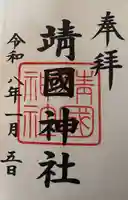 奉拝
靖國神社
靖国神社
令和八年一月五日